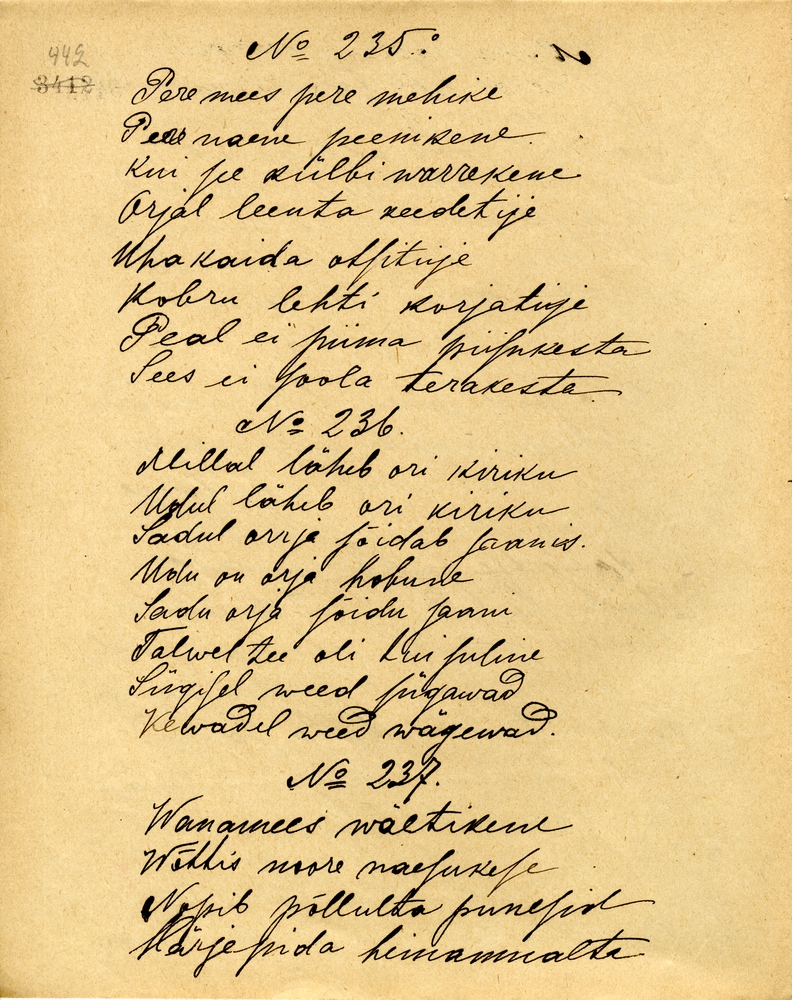 442
3412
No 235.
Pere mees pere mehike
Pere naene peenikene.
Kui se külbi warrekene
Orjal leenta keedetije
Uhakaida otsitije
Kobru lehti korjatije
Peal ei piima piisukesta
Sees ei soola terakesta.
No 236.
Millal läheb ori kiriku
Udul läheb ori kiriku
Sadul orrja sõidab saanis.
Udu on orja hobune
Sadu orja sõidu saani
Talwel tee oli kui suline
Sügisel weed sügawad
Kewadel weed wägewad.
No 237.
Wanamees wäetikene
Wõttis noore naesukese
Nopib põllulta punesid
Härjepida heinamualta